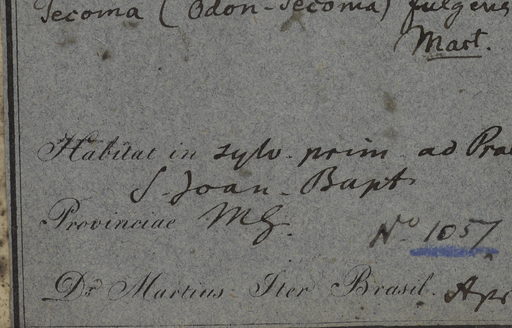 Tecoma (Odon-Tecoma) fulgens
Mart.
Habitat in sylv. prim. ad Prae
S. Joan. Bapt.
Provinciae MG.
No. 1057.
Dr. Martius Iter Brasil. Apr